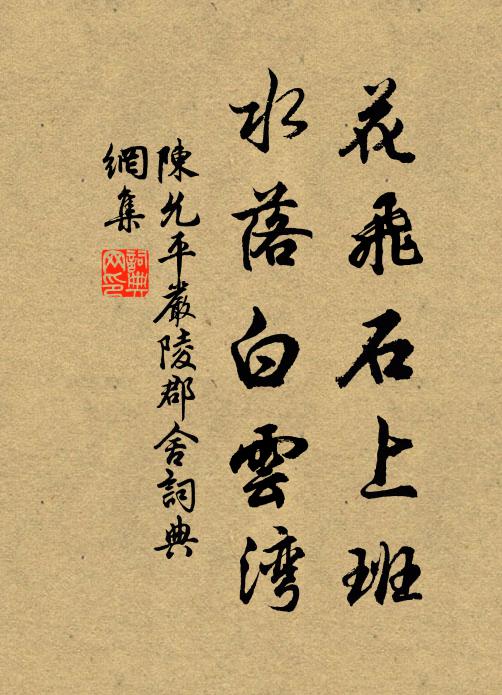 花飛石上班
水落白雲湾
陳允平嚴陵郡舍詞典
網集
詞典
网印